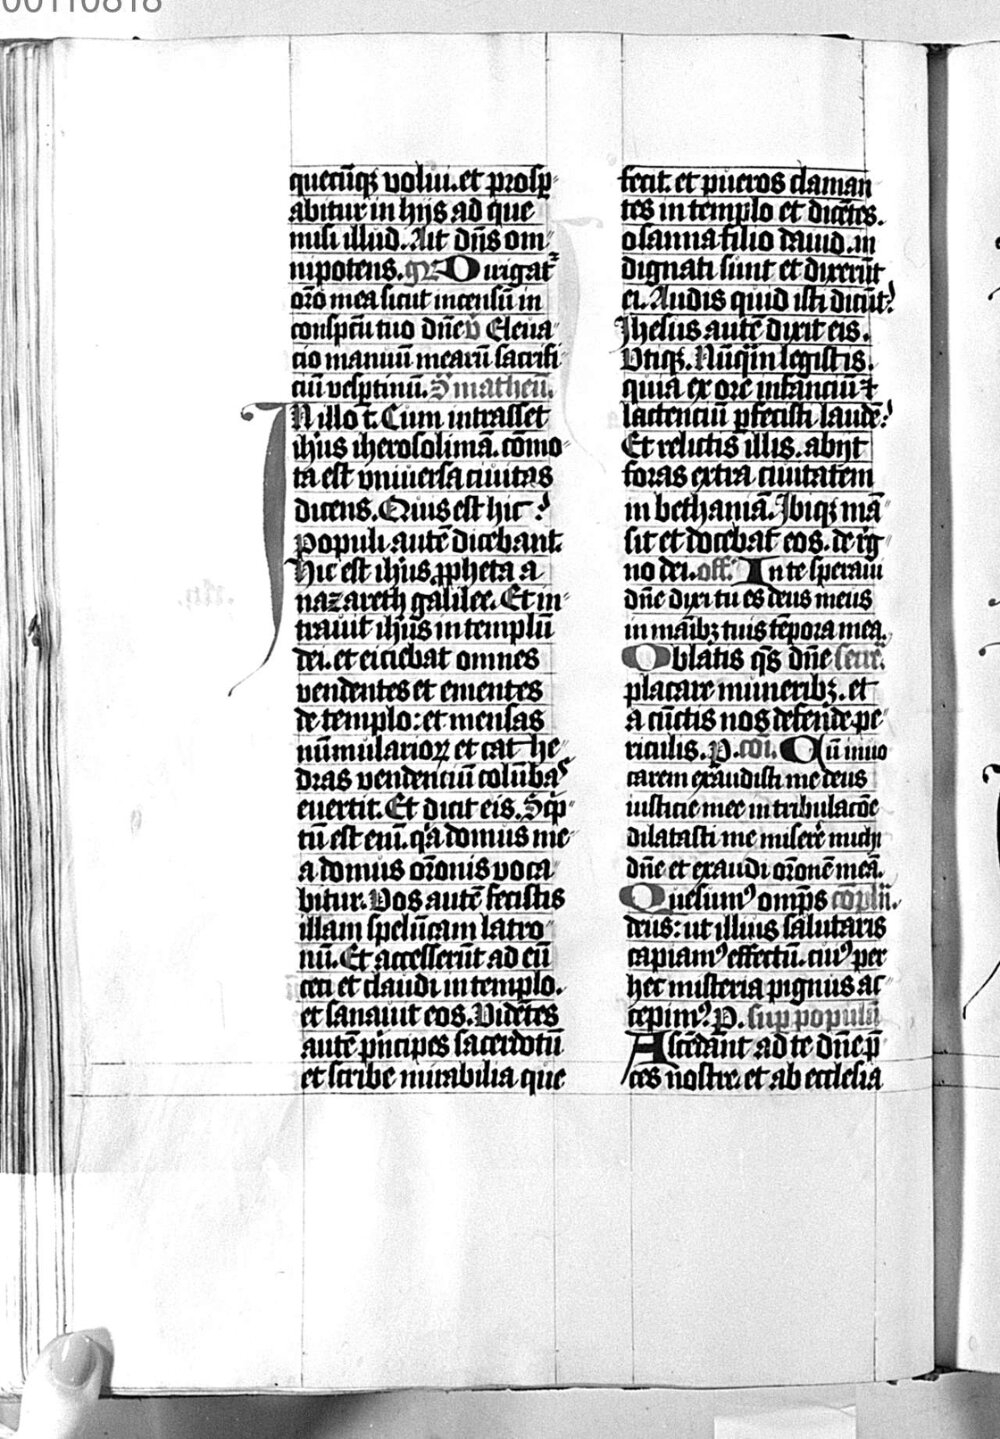 00110818
quecūqꝫ volui. et prosp̲
abitur in hijs ad que
misi illud. Ait dn̄s om
nipotens. gr̄ Dirigat᷑
orō mea sicut incensū in
conspc̄u tuo dn̄e v̄ Eleua
cio manuū mearū sacrifi
ciū vesp̲tinū. S̄ matheū.
IN illo t̄. Cum intrasset
ih̄us iherosolimā. cōmo
ta est vniuersa ciuitas
dicens. Quis est hic?
Populi autē dicebant.
Hic est ih̄us ꝓpheta a
nazareth galilee. Et in
trauit ih̄us in templū
dei. et eiciebat omnes
vendentes et ementes
de templo: et mensas
nūmularioꝝ et cathe
dras vendenciū colūbas
euertit. Et dicit eis. Sc̄p
tū est eni̅. qͥa domus me
a domus orōnis voca
bitur. Vos autē fecistis
illam spelūcam latro
nū. Et accesserūt ad eū
ceci et claudi in templo.
et sanauit eos. Vidētes
autē pͥncipes sacerdotū
et scribe mirabilia que
fecit. et pueros claman
tes in templo et dicētes.
osanna filio dauid. in
dignati sunt et dixerūt
ei. Audis quid isti dicūt?
Jhesus autē dixit eis.
Vtiqꝫ. Nūqͣm legistis.
quia ex ore infanciū ⁊
lactenciū p̲fecisti laudē?
Et relictis illis. abijt
foras extra ciuitatem
in bethaniā. Ibiqꝫ mā
sit et docebat eos. de reg
no dei. off. In te speraui
dn̄e dixi tu es deus meus
in manibꝫ tuis tēpora mea.
Oblatis qs̄ dn̄e secr̄.
placare muneribꝫ. et
a cūctis nos defende pe
riculis. P. cōi. Cū inuo
carem exaudisti me deus
iusticie mee in tribulacōe
dilatasti me miserē michi
dn̄e et exaudi orōnē meā.
Quesumꝰ omp̄s cōpln̄.
deus: ut illius salutaris
capiamꝰ effectū. cuiꝰ per
hec misteria pignus ac
cepimꝰ. P. sup populū
Ascēdant ad te dn̄e p̄
ces nostre. et ab ecclesia